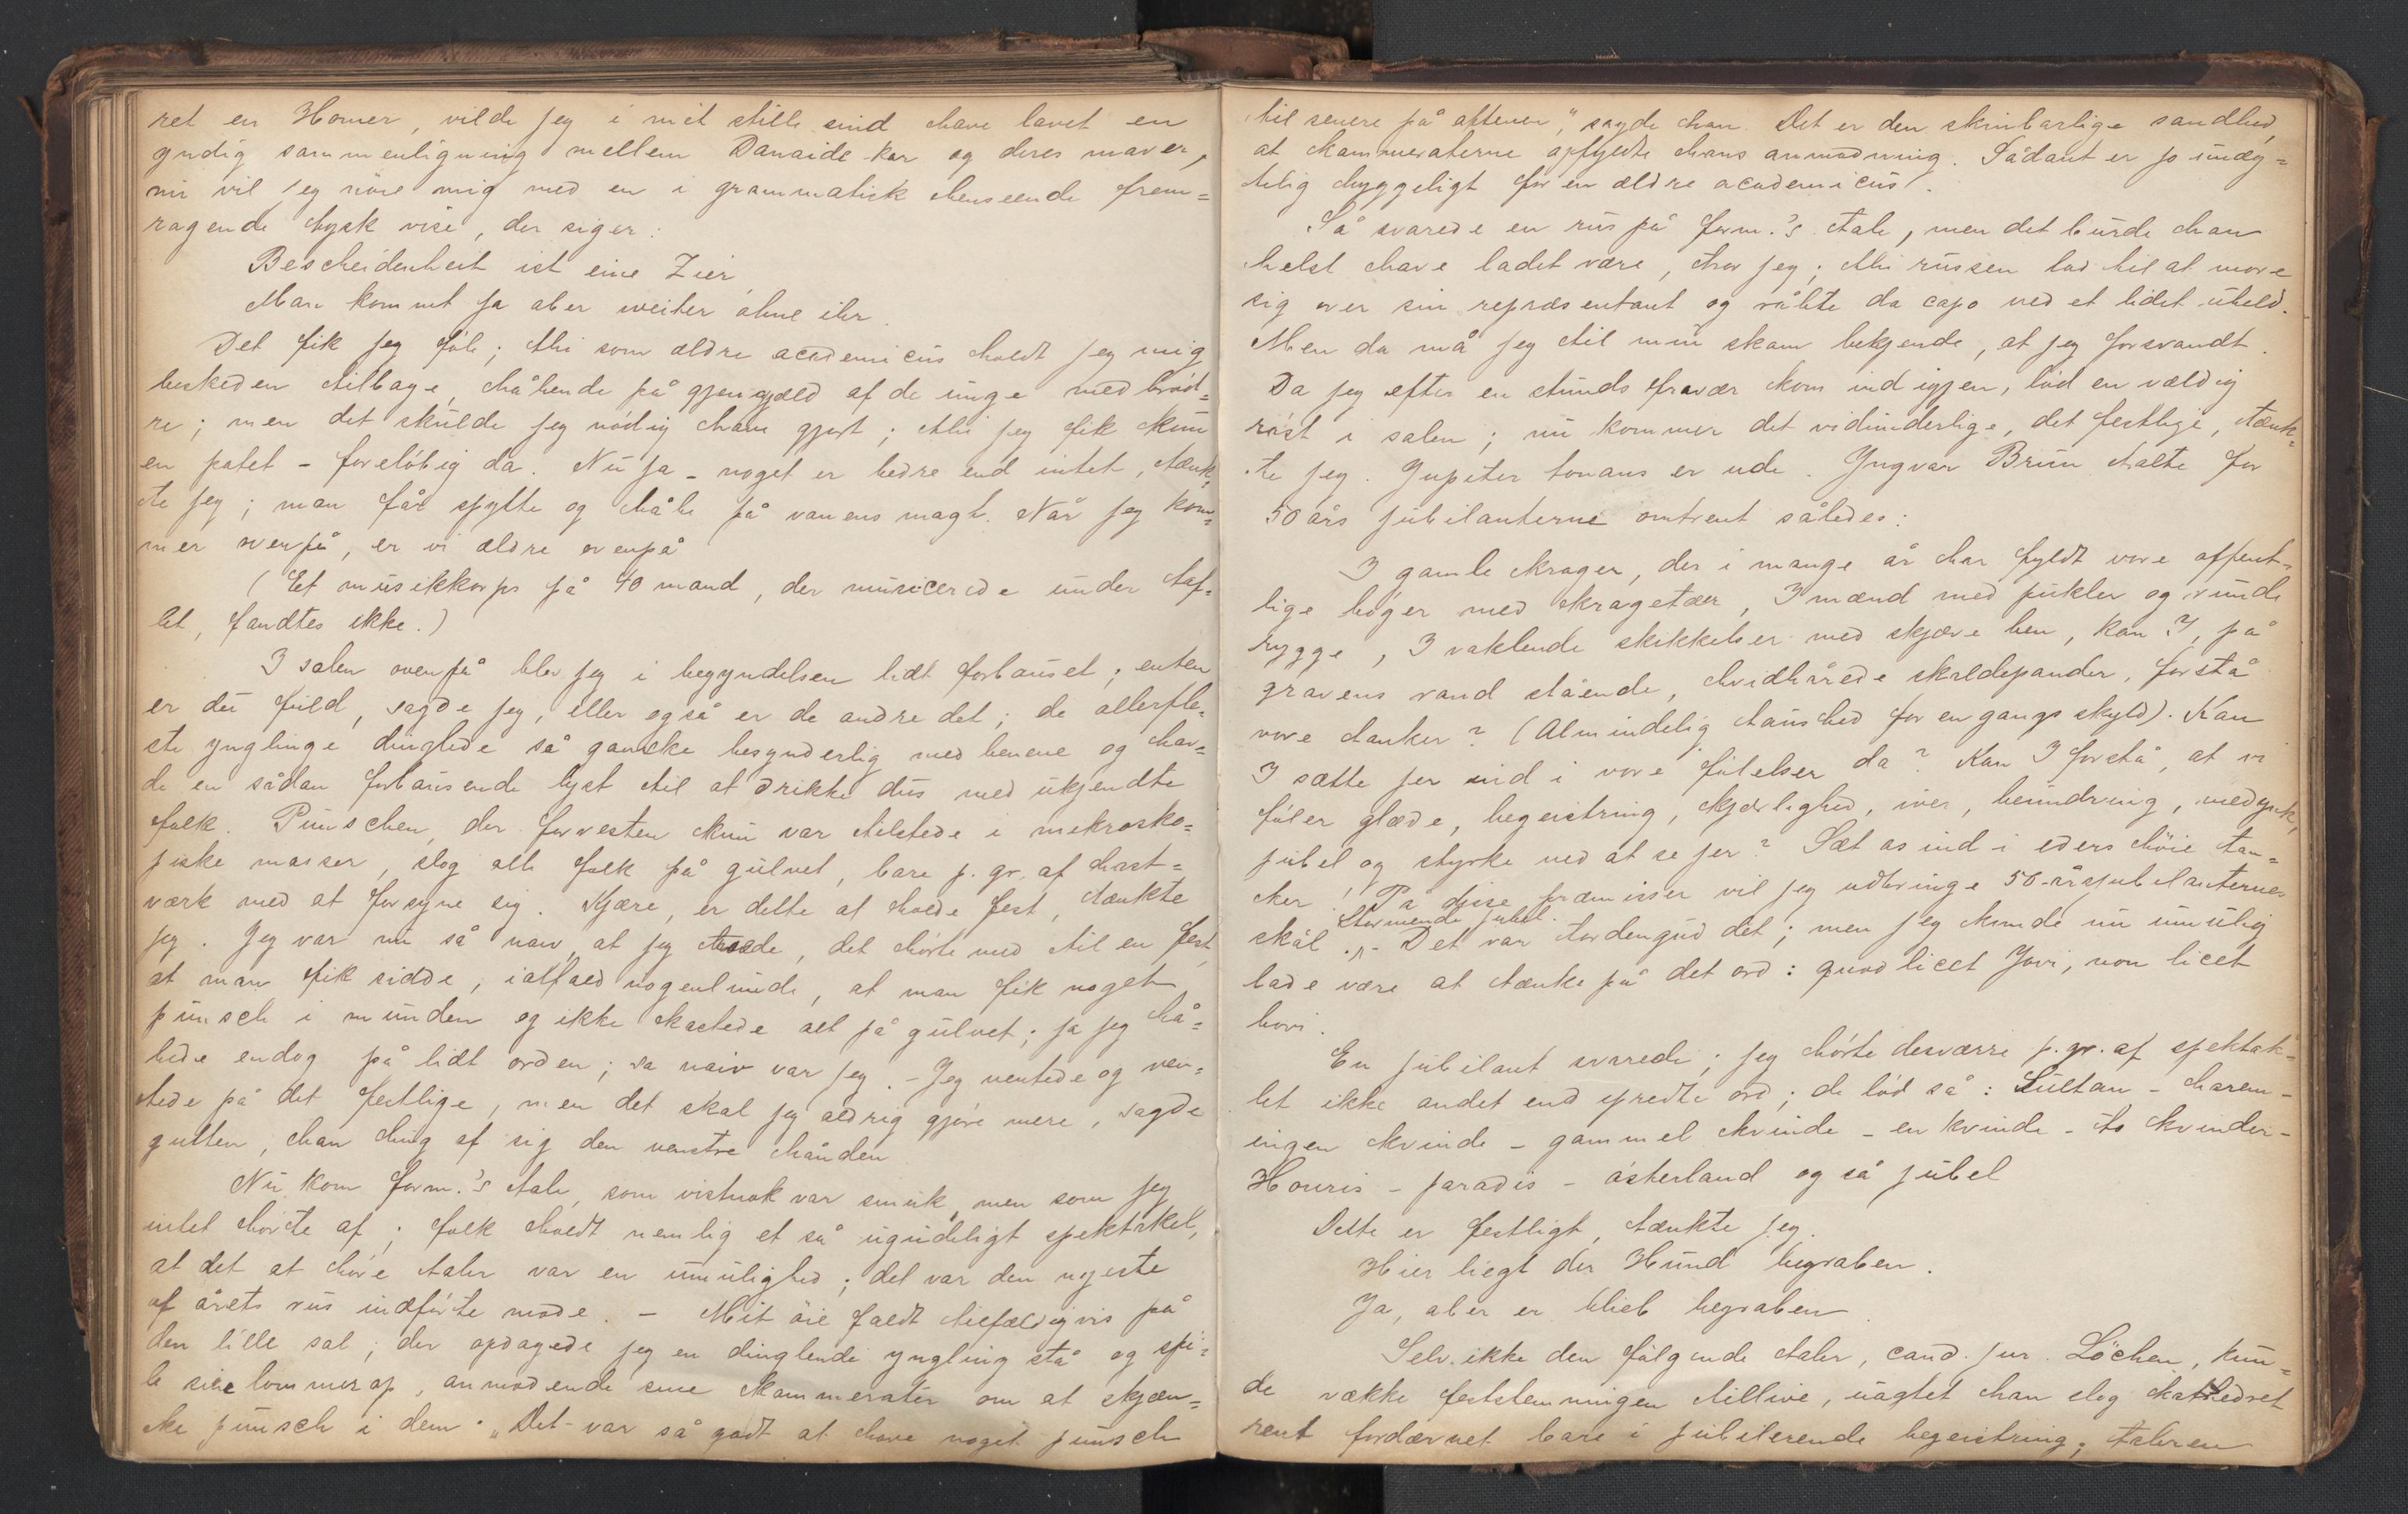 ret en Homer, vilde jeg i mit stille sind have lavet en
yndig sammenligning mellem Danaide-kar og deres maver,
nu vil jeg nöie mig med en i grammatisk henseende frem=
ragende tysk vise, der siger:
Bescheidenheit ist eine Zier
Man kommt ja aber weiter ohne ihr.
Det fik jeg föle; thi som ældre academicus holdt jeg mig
beskeden tilbage, håbende på gjengjæld af de unge medbröd=
re; men det skulde jeg nödig have gjort; thi jeg fik kun
en potet - forelöbig da. Nu ja - noget er bedre end intet, tænk=
te jeg; man får spytte og håbe på vanens magt. Når jeg kom=
mer ovenpå, er vi ældre ovenpå
(Et musikkorps på 40 mand, der musicerede under taf=
let, fandtes ikke.)
I salen ovenpå blev jeg i begyndelsen lidt forbauset; enten
er du fuld, sagde jeg, eller også er de andre det; de allerfle=
ste ynglinge dinglede så ganske besynderlig med benene og hav=
de en sådan forbausende lyst til at drikke dus med ukjendte
folk. Punschen, der forresten kun var tilstede i mikrosko=
piske masser, slog alle folk på gulvet, bare p. gr. af hast=
værk med at forsyne sig. Kjære, er dette at holde fest, tænkte
jeg. Jeg var nu så naiv, at jeg troede, det hörte med til en fest,
at man fik sidde, ialfald nogenlunde, at man fik noget
punsch i munden og ikke kastede alt på gulvet; ja jeg hå=
bede endog på lidt orden; sa naiv var jeg. - Jeg ventede og ven=
tede på det festlige, men det skal jeg aldrig gjöre mere, sagde
gutten, han hug af sig den venstre hånden
Nu kom form.'s tale, som vistnok var smuk, men som jeg
intet hörte af; folk holdt nemlig et så ugudeligt spektakel,
at det at höre taler var en umulighed; det var den nyeste
af årets rus indförte mode. - Mit öie faldt tilfældigvis på
den lille sal; der opdagede jeg en dinglende yngling stå og spi=
le sine lommer op, anmodende sine kammerater om at skjæn=
ke punsch i dem. "Det var så godt at have noget punsch
til senere på aftenen," sagde han. Det er den skinbarlige sandhed,
at kammeraterne opfyldte hans anmodning. Sådant er jo umåg=
telig hyggeligt for en ældre academicus.
Så svarede en rus på form.'s tale, men det burde han
helst have ladet være, tror jeg; thi russen lod til at more
sig over sin repræsentant og råbte da capo ved et lidet uheld.
Men da må jeg til min skam bekjende, at jeg forsvandt.
Da jeg efter en stunds fravær kom ind igjen, löd en vældig
röst i salen; nu kommer det vidunderlige, det festlige, tænk=
te jeg. Jupiter tonans er ude. Yngvar Brun talte for
50 års jubilanterne omtrent således:
I gamle krager, der i mange år har fyldt vore offent=
lige böger med kragetær, I mænd med pukler og runde
rygge, I vaklende skikkelser med skjæve ben, kan I, på
gravens rand stående, hvidhårede skaldepander, forstå
vore tanker? (Almindelig taushed for en gangs skyld). Kan
I sætte jer ind i vore fölelser da? Kan I forstå, at vi
föler glæde, begeistring, kjærlighed, iver, beundring, medynk,
jubel og styrke ved at se jer? Sæt os ind i eders höie tan=
ker! På disse præmisser vil jeg udbringe 50-årsjubilanternes
Stormende jubel.
skål. - Det var tordengud det; men jeg kunde nu umulig
lade være at tænke på det ord: quod licet Jovi, non licet
bovi.
En jubilant svarede; jeg hörte desværre p. gr. af spektak=
let ikke andet end spredte ord; de löd så: Sultan - harem -
ingen kvinde - gammel kvinde - en kvinde - to kvinder -
Houris - paradis - österland og så jubel
Dette er festligt, tænkte jeg.
Hier liegt der Hund begraben.
Ja, aber er blieb begraben.
Selv ikke den fölgende taler, cand. jur. Löchen, kun=
de vække feststemningen tillive, uagtet han slog kathedret
rent fordærvet bare i jubilerende begeistring; taleren